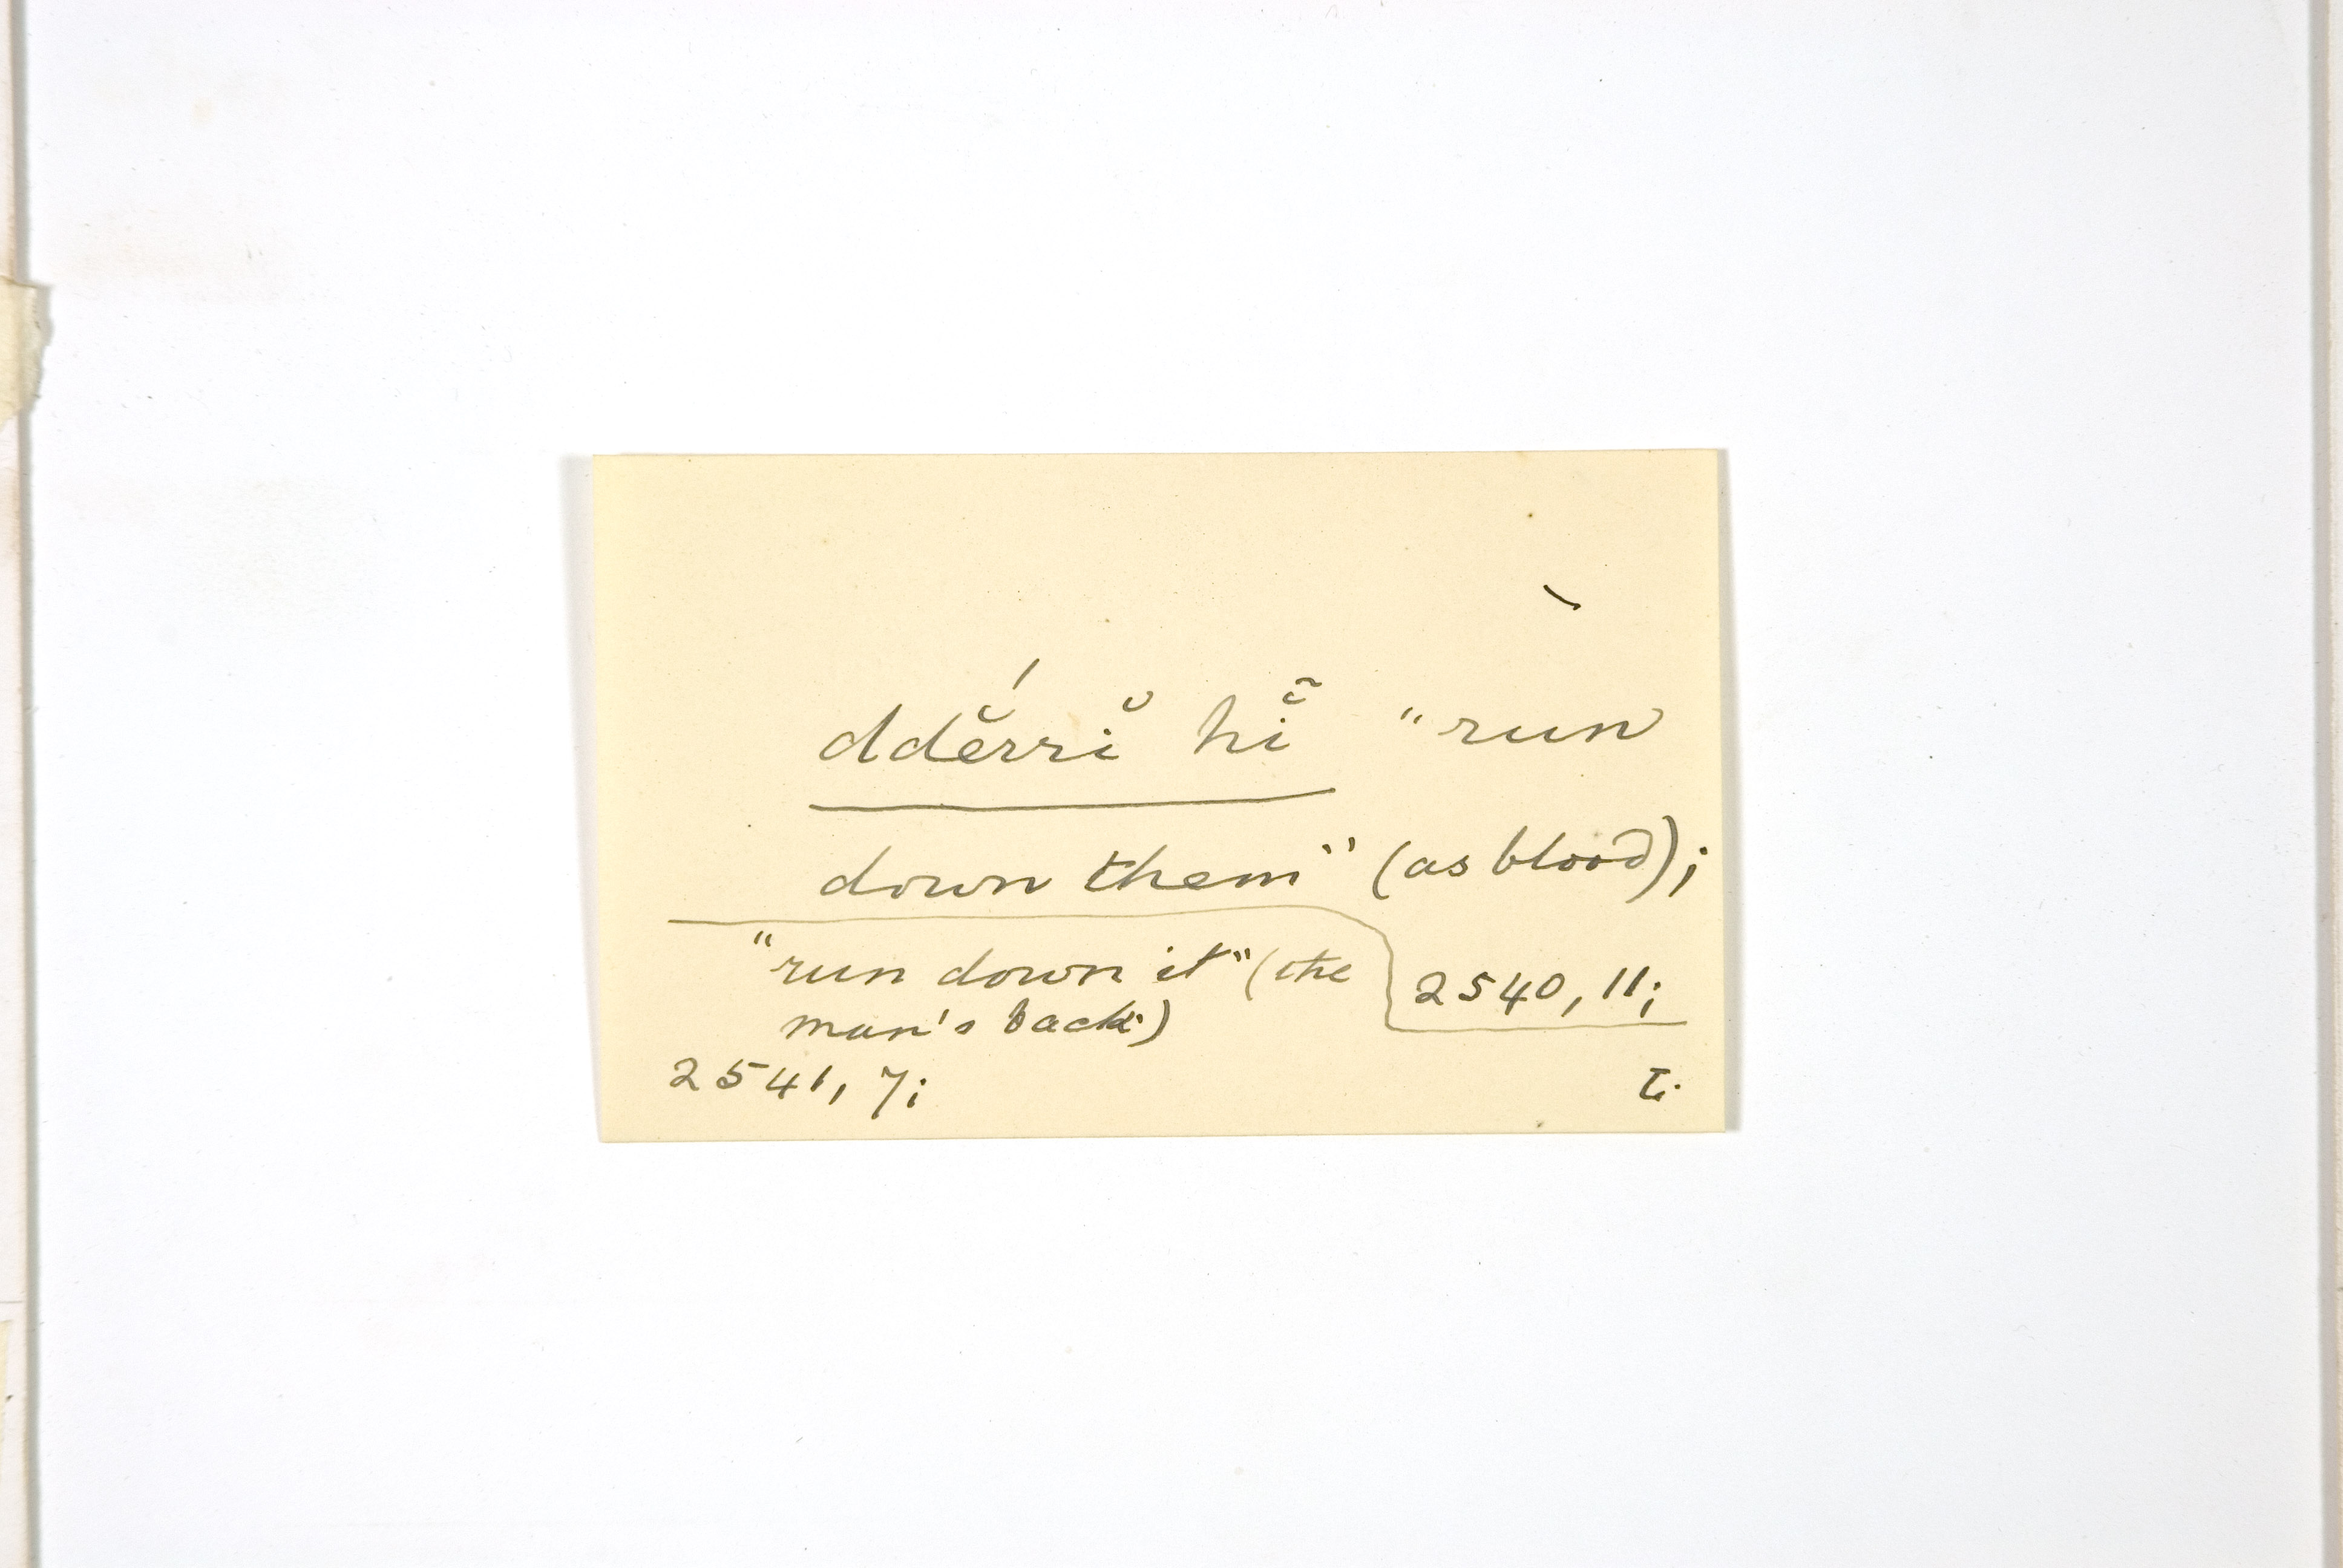 ddĕ́rrĭ hĭ̃ "run
down them" (as blood);
2540, 11;
"run down it" (the
man's back)
2541, 7;
T.